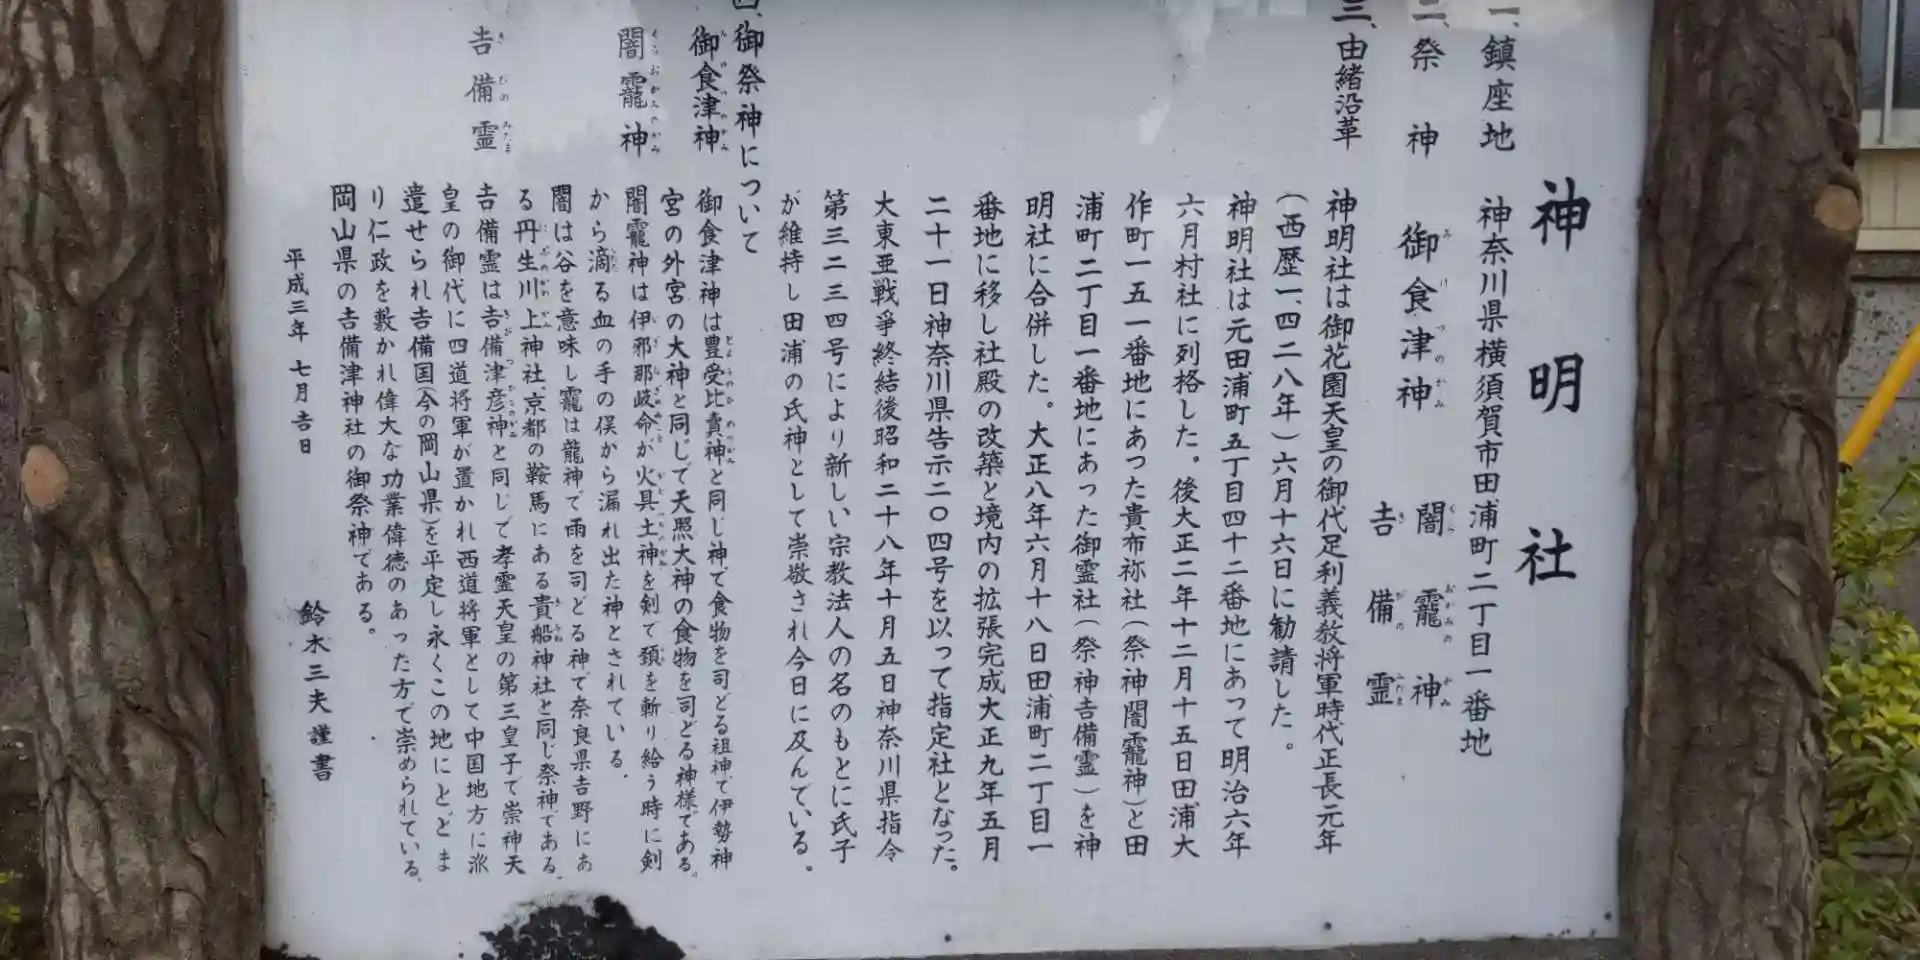 神明社
一、鎮座地　神奈川県横須賀市田浦町二丁目一番地
二、祭神　御食津神　闇龗神
吉備霊
三、由緒沿革
神明社は御花園天皇の御代足利義教将軍時代正長元年
（西歴一、四二八年）六月十六日に勧請した。
神明社は元田浦町五丁目四十二番地にあって明治六年
六月村社に列格した。後大正二年十二月十五日田浦大
作町一五一番地にあった貴布祢社（祭神闇龗神）と田
浦町二丁目一番地にあった御霊社（祭神吉備霊）を神
明社に合併した。大正八年六月十八日田浦町二丁目一
番地に移し社殿の改築と境内の拡張完成大正九年五月
二十一日神奈川県告示二〇四号を以って指定社となった。
大東亜戦爭終結後昭和二十八年十月五日神奈川県指令
第三二三四号により新しい宗教法人の名のもとに氏子
が維持し田浦の氏神として崇敬され今日に及んでいる。
四、御祭神について
御食津神　御食津神は豊受比賣神と同じ神で食物を司どる祖神で伊勢神
宮の外宮の大神と同じで天照大神の食物を司どる神様である。
闇龗神　闇龗神は伊邪那岐命が火具土神を剣で頚を斬り給う時に剣
から滴る血の手の俣から漏れ出た神とされている.
闇は谷を意味し龗は龍神で雨を司どる神で奈良県吉野にあ
る丹生川上神社、京都の鞍馬にある貴船神社と同じ祭神である.
吉備霊　吉備霊は吉備津彦神と同じで孝霊天皇の第三皇子で崇神天
皇の御代に四道将軍が置かれ西道将軍として中国地方に派
遣せられ吉備国(今の岡山県)を平定し永くこの地にとどま
り仁政を敷かれ偉大な功業偉徳のあった方で崇められている.
岡山県の吉備津神社の御祭神である。
平成三年　七月吉日
鈴木三夫謹書